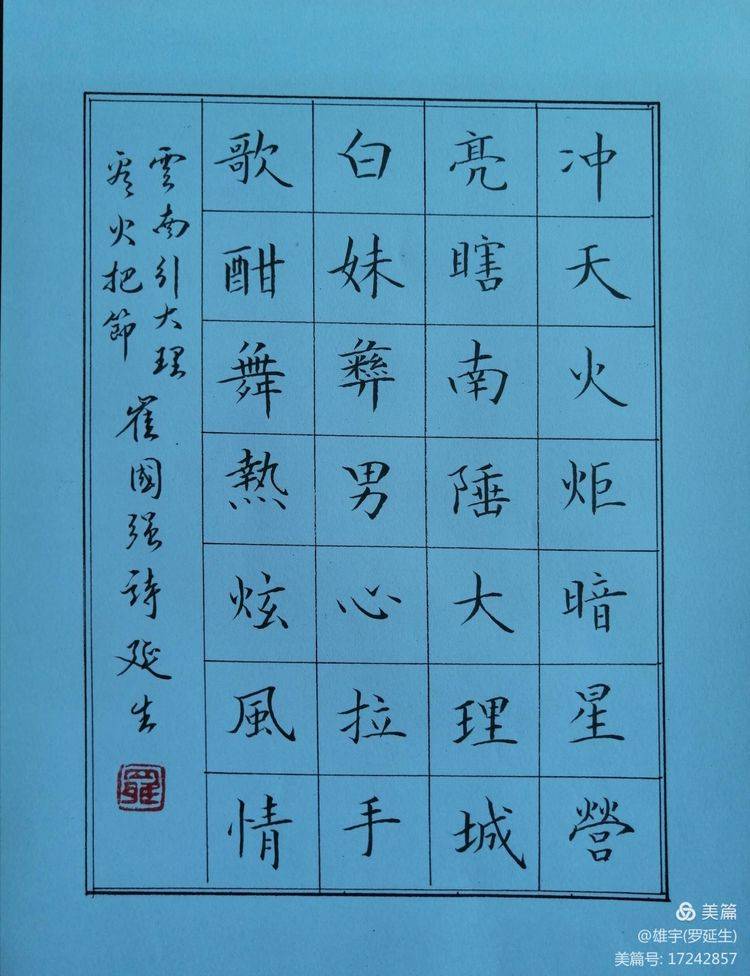 冲天火炬暗星營
亮瞎南陲大理城
白妹彝男心拉手
歌酣舞熱炫風情
雲南引大理
火把節
崔國强詩延生
羅
美篇
@雄宇(罗延生)
美篇号: 17242857